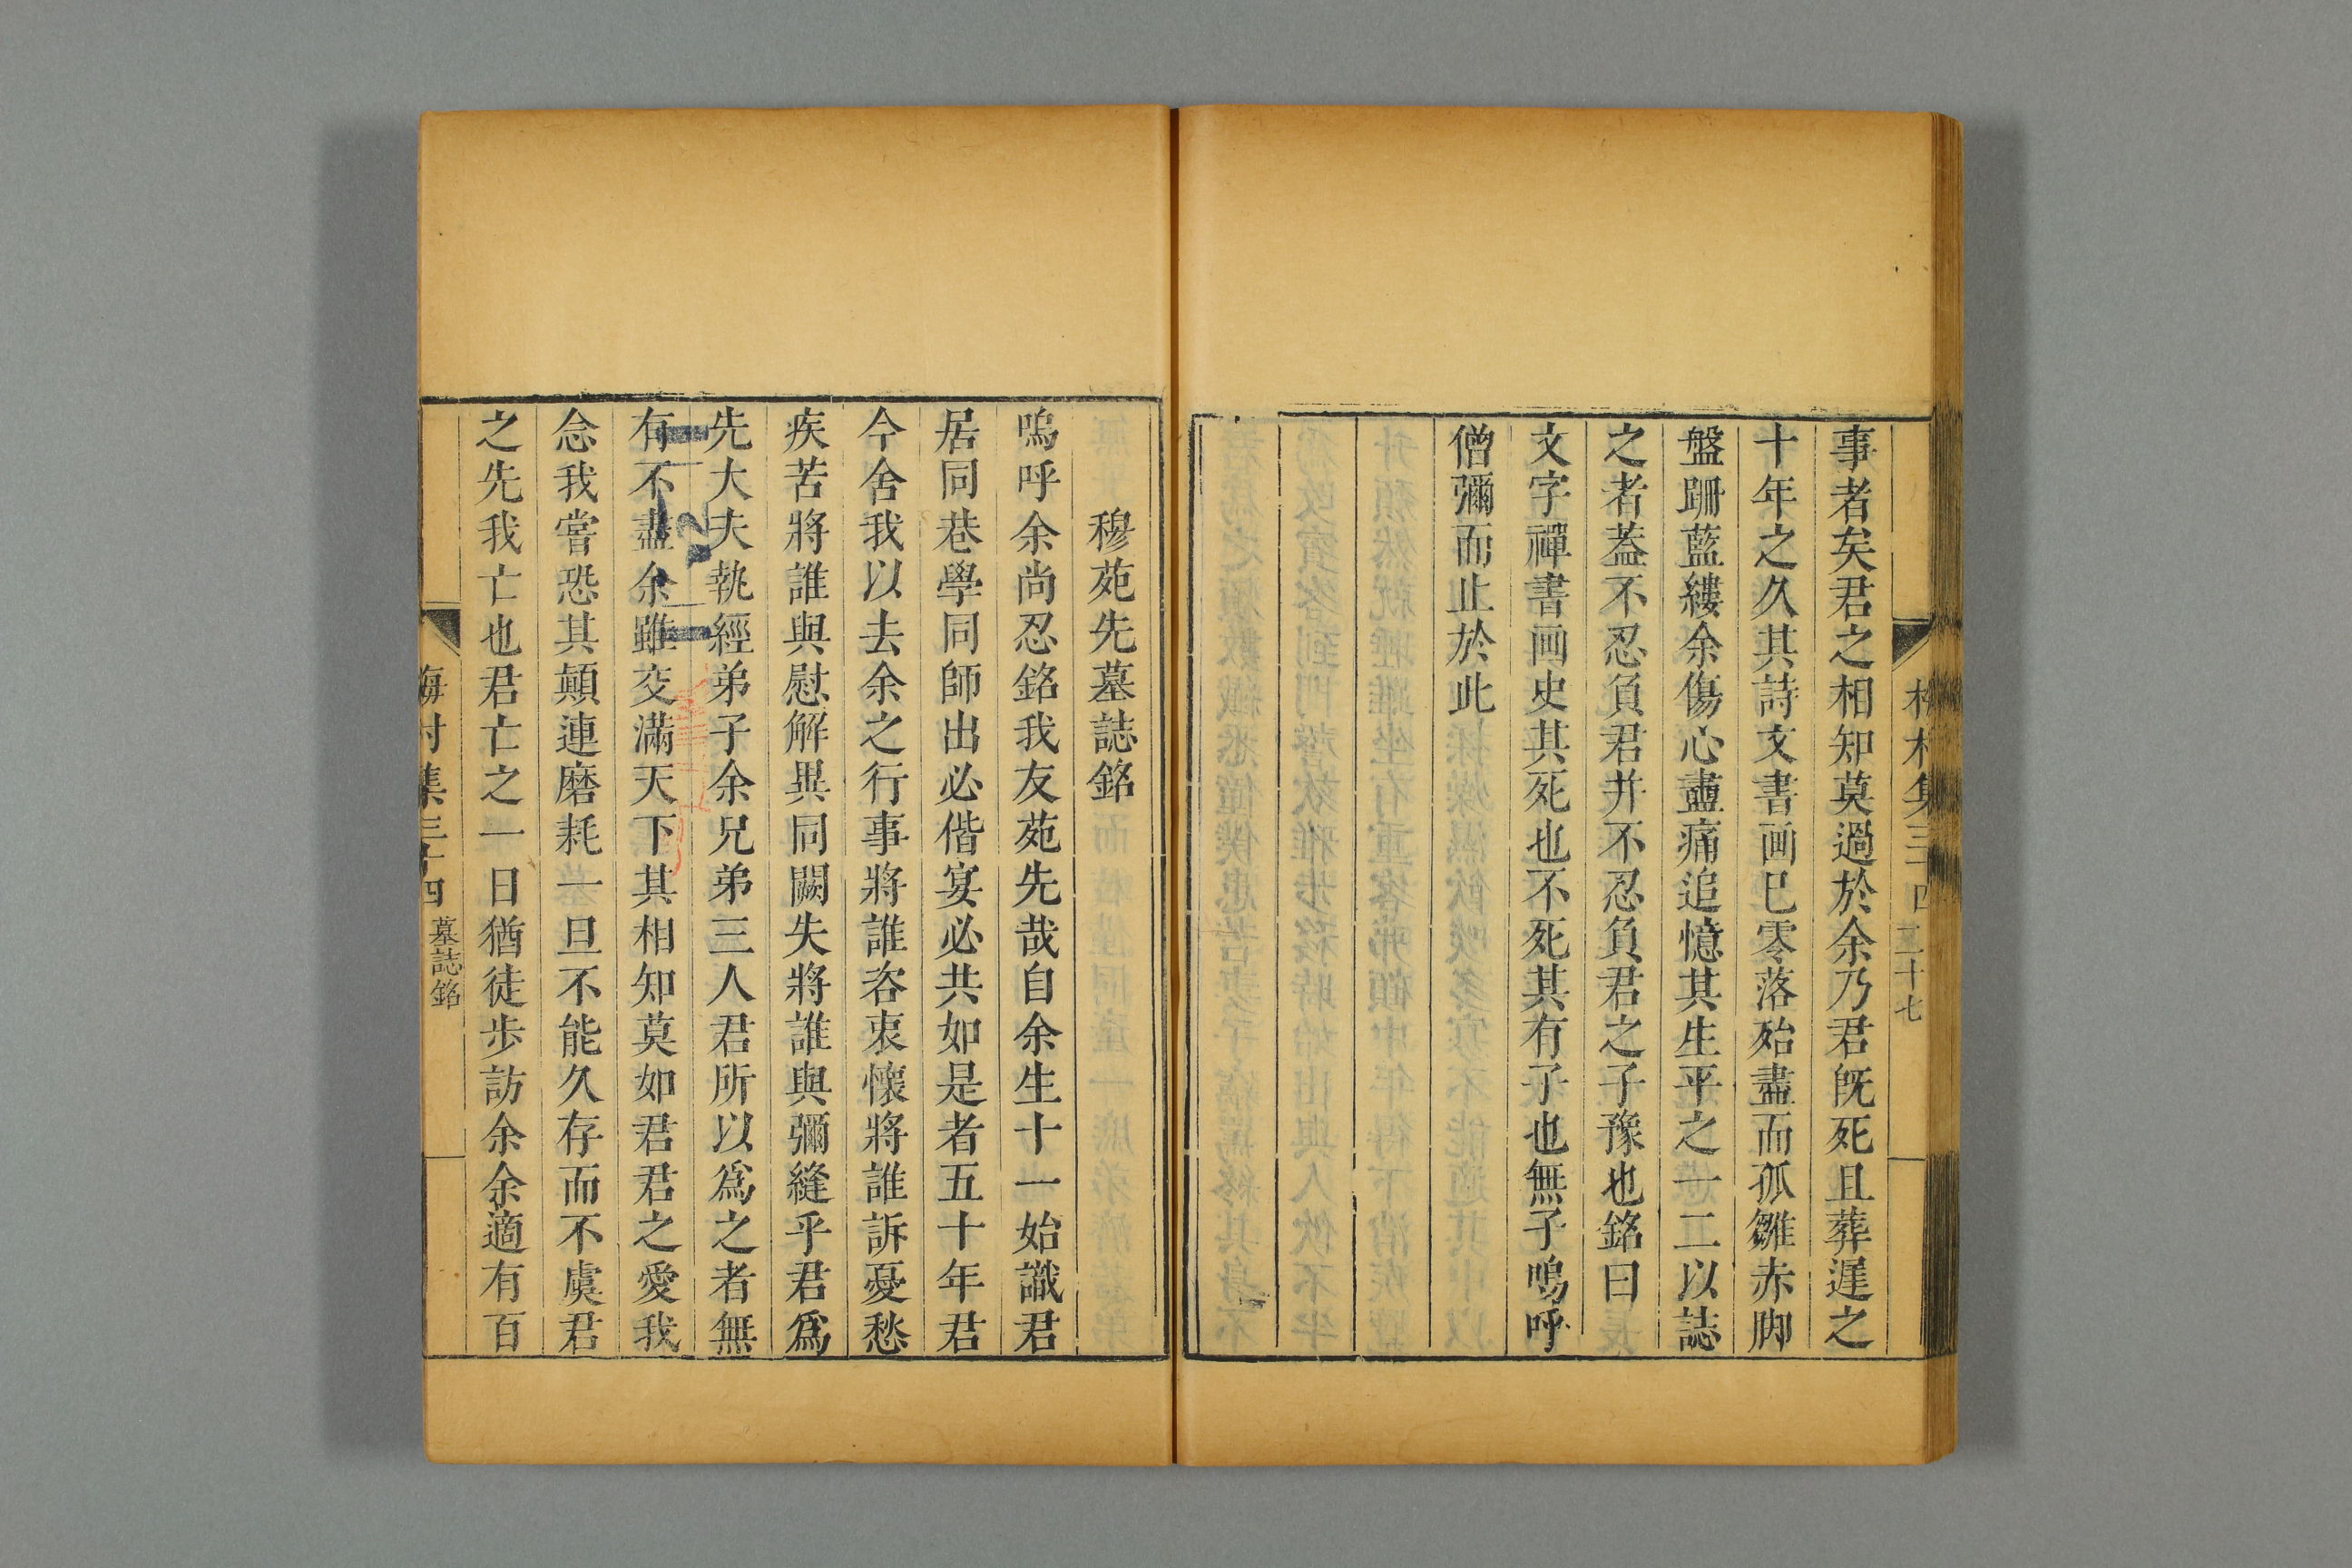 事者矣君之相知莫過於余乃君既死且葬遲之
十年之久其詩文書画巳零落殆盡而孤雛赤脚
盤跚藍縷余傷心衋痛追憶其生平之一二以誌
之者葢不忍負君并不忍負君之子豫也銘曰
文字禪書画史其死也不死其有子也無子嗚呼
僧彌而止於此
二十七
穆苑先墓誌銘
嗚呼余尚忍銘我友苑先哉自余生十一始識君
居同巷學同師出必偕宴必共如是者五十年君
今舍我以去余之行事將誰咨衷懷將誰訴憂愁
疾苦將誰與慰解異同闕失將誰與彌縫乎君為
先大夫執經弟子余兄弟三人君所以為之者無
有不盡余雖交滿天下其相知莫如君君之愛我
念我嘗恐其顛連磨耗一旦不能久存而不虞君
之先我亡也君亡之一日猶徒步訪余余適有百
梅村集三十四 墓誌銘